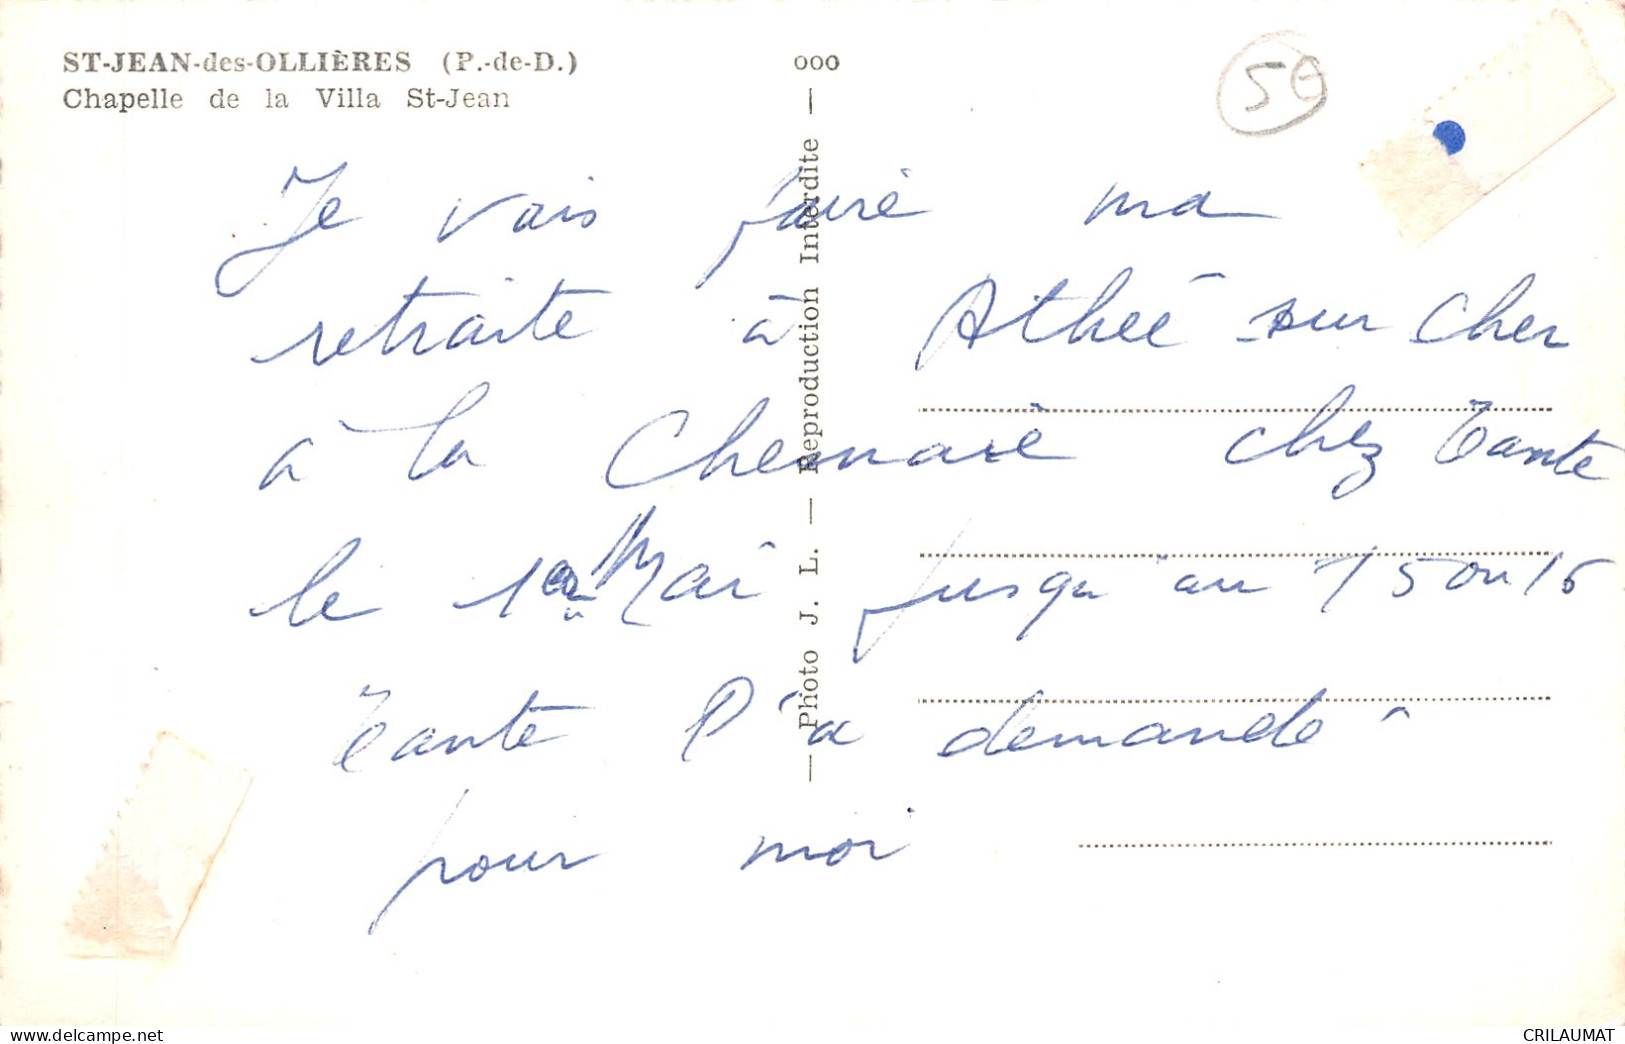 ST-JEAN-des-OLLIÈRES (P.-de-D.)
Chapelle de la Villa St-Jean
ooo
50
— Photo J. L. — Reproduction Interdite —
Je vais faire ma
retraite à Athée sur Cher
à la Chesnaie chez Tante
le 10 Mai jusqu'au 15 ou 16
Tante l'a demandé
pour moi
www.delcampe.net
CRILAUMAT